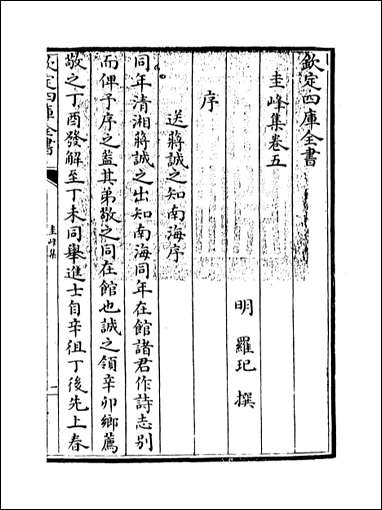 欽定四庫全書
圭峰集卷五
明　羅玘　撰
序
送蔣誠之知南海序
同年清湘蔣誠之出知南海同年在館諸君作詩志别
而俾予序之蓋其弟敬之同在館也誠之領辛卯鄉薦
敬之丁酉發解至丁未同舉進士自辛徂丁後先上春
欽定四庫全書
圭峰集
一